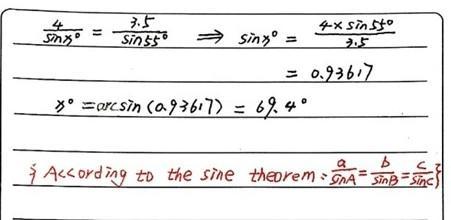 4/sinx° = 3.5/sin55° ⟹ sinx° = 4×sin55°/3.5
= 0.93617
x° = arcsin(0.93617) = 69.4°
{ According to the sine theorem: a/sinA = b/sinB = c/sinC }